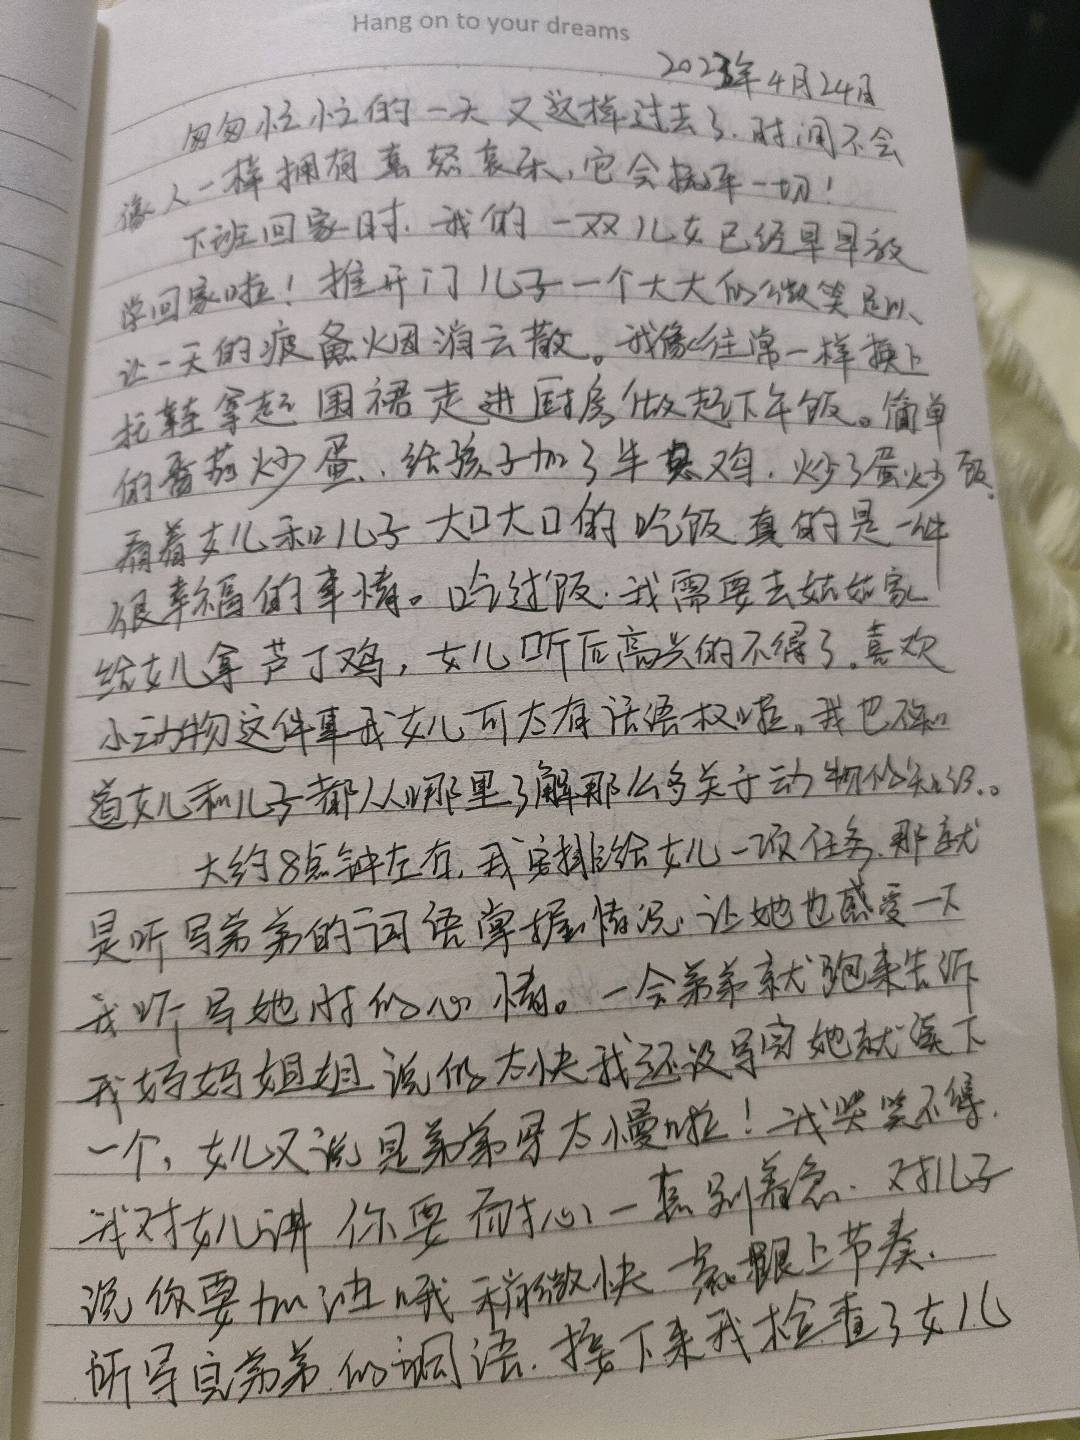 Hang on to your dreams
2023年4月24日
匆匆忙忙的一天又这样过去了.时间不会
像人一样拥有喜怒哀乐,它会抚平一切!
下班回家时.我的一双儿女已经早早放
学回家啦!推开门儿子一个大大的微笑足以
让一天的疲惫烟消云散。我像往常一样换上
拖鞋拿起围裙走进厨房做起下午饭。简单
的番茄炒蛋、给孩子加了牛 鸡.炒了蛋炒饭.
看着女儿和儿子大口大口的吃饭真的是一件
很幸福的事情。吃过饭.我需要去姑姑家
给女儿拿芦丁鸡,女儿听后高兴的不得了.喜欢
小动物这件事我女儿可太有话语权啦。我也不知
道女儿和儿子都从哪里了解那么多关于动物的知识.。
大约8点钟左右.我安排给女儿一项任务.那就
是听写弟弟的词语掌握情况.让她也感受一下
我听写她时的心情。一会弟弟就跑来告诉
我妈妈姐姐说的太快我还没写完她就读下
一个,女儿又说是弟弟写太慢啦!我哭笑不得.
我对女儿讲你要耐心一点别着急.对儿子
说你要加油哦稍微快一点跟上节奏.
听写完弟弟的词语.接下来我检查了女儿